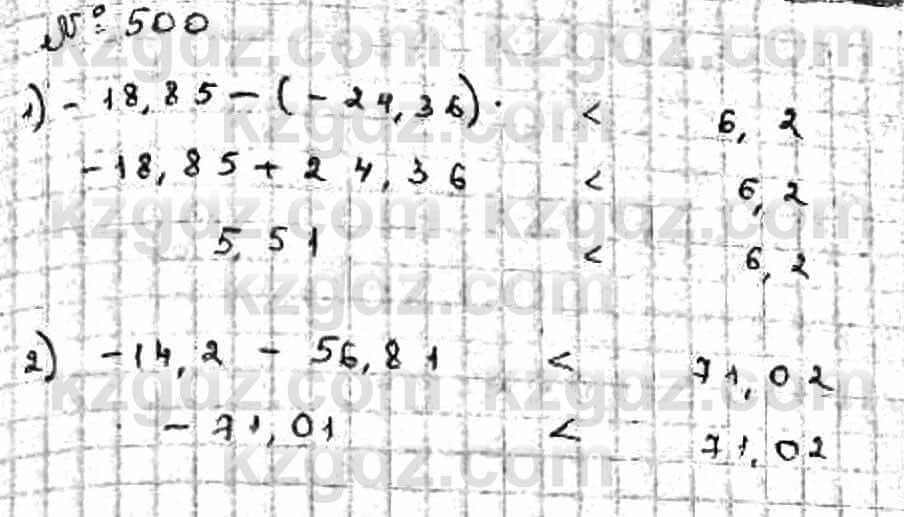 № 500
1) - 18,85 - (- 24,36) < 6,2
-18,85 + 24,36 < 6,2
5,51 < 6,2
2) -14,2 - 56,81 < 71,02
- 71,01 < 71,02
kzgdz.com kzgdz.com
kzgdz.com
kzgdz.com kzgdz.com
kzgdz.com
kzgdz.com kzgdz.com
kzgdz.com